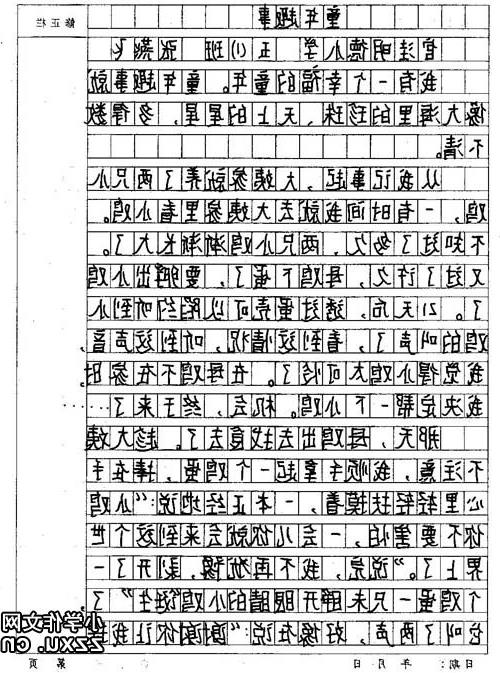 修正栏
童年趣事
官洼明德小学 五(1)班 张燕飞
我有一个幸福的童年。童年趣事就
像大海里的珍珠,天上的星星,多得数
不清。
从我记事起,大姨爹就养了两只小
鸡,一有时间我就去大姨爹里看小鸡。
不知过了多久,两只小鸡渐渐长大了。
又过了许久,母鸡下蛋了,要孵出小鸡
了。21天后,透过蛋壳可以隐约听到小
鸡的叫声了,看到这情况,听到这声音,
我觉得小鸡太可怜了。在母鸡不在家时,
我决定帮一下小鸡。机会,终于来了……
那天,母鸡出去找食去了。趁大姨
不注意,我顺手拿起一个鸡蛋,捧在手
心里轻轻抚摸着,一本正经地说:“小鸡
你不要害怕,一会儿你就会来到这个世
界上了。”说完,我不再犹豫,剥开了一
个鸡蛋一只未睁开眼睛的小鸡“诞生”了
它叫了两声,好像在说:“谢谢你让我
小学作文网
zzxu.cn
日期: 年 月 日 第 页